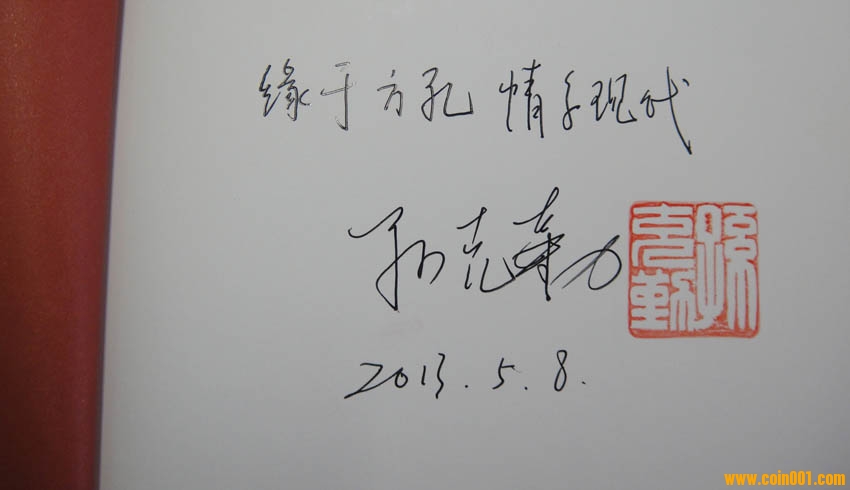 缘于方孔 情系现代
孙克勤
孫克勤
2013.5.8.
www.coin001.com